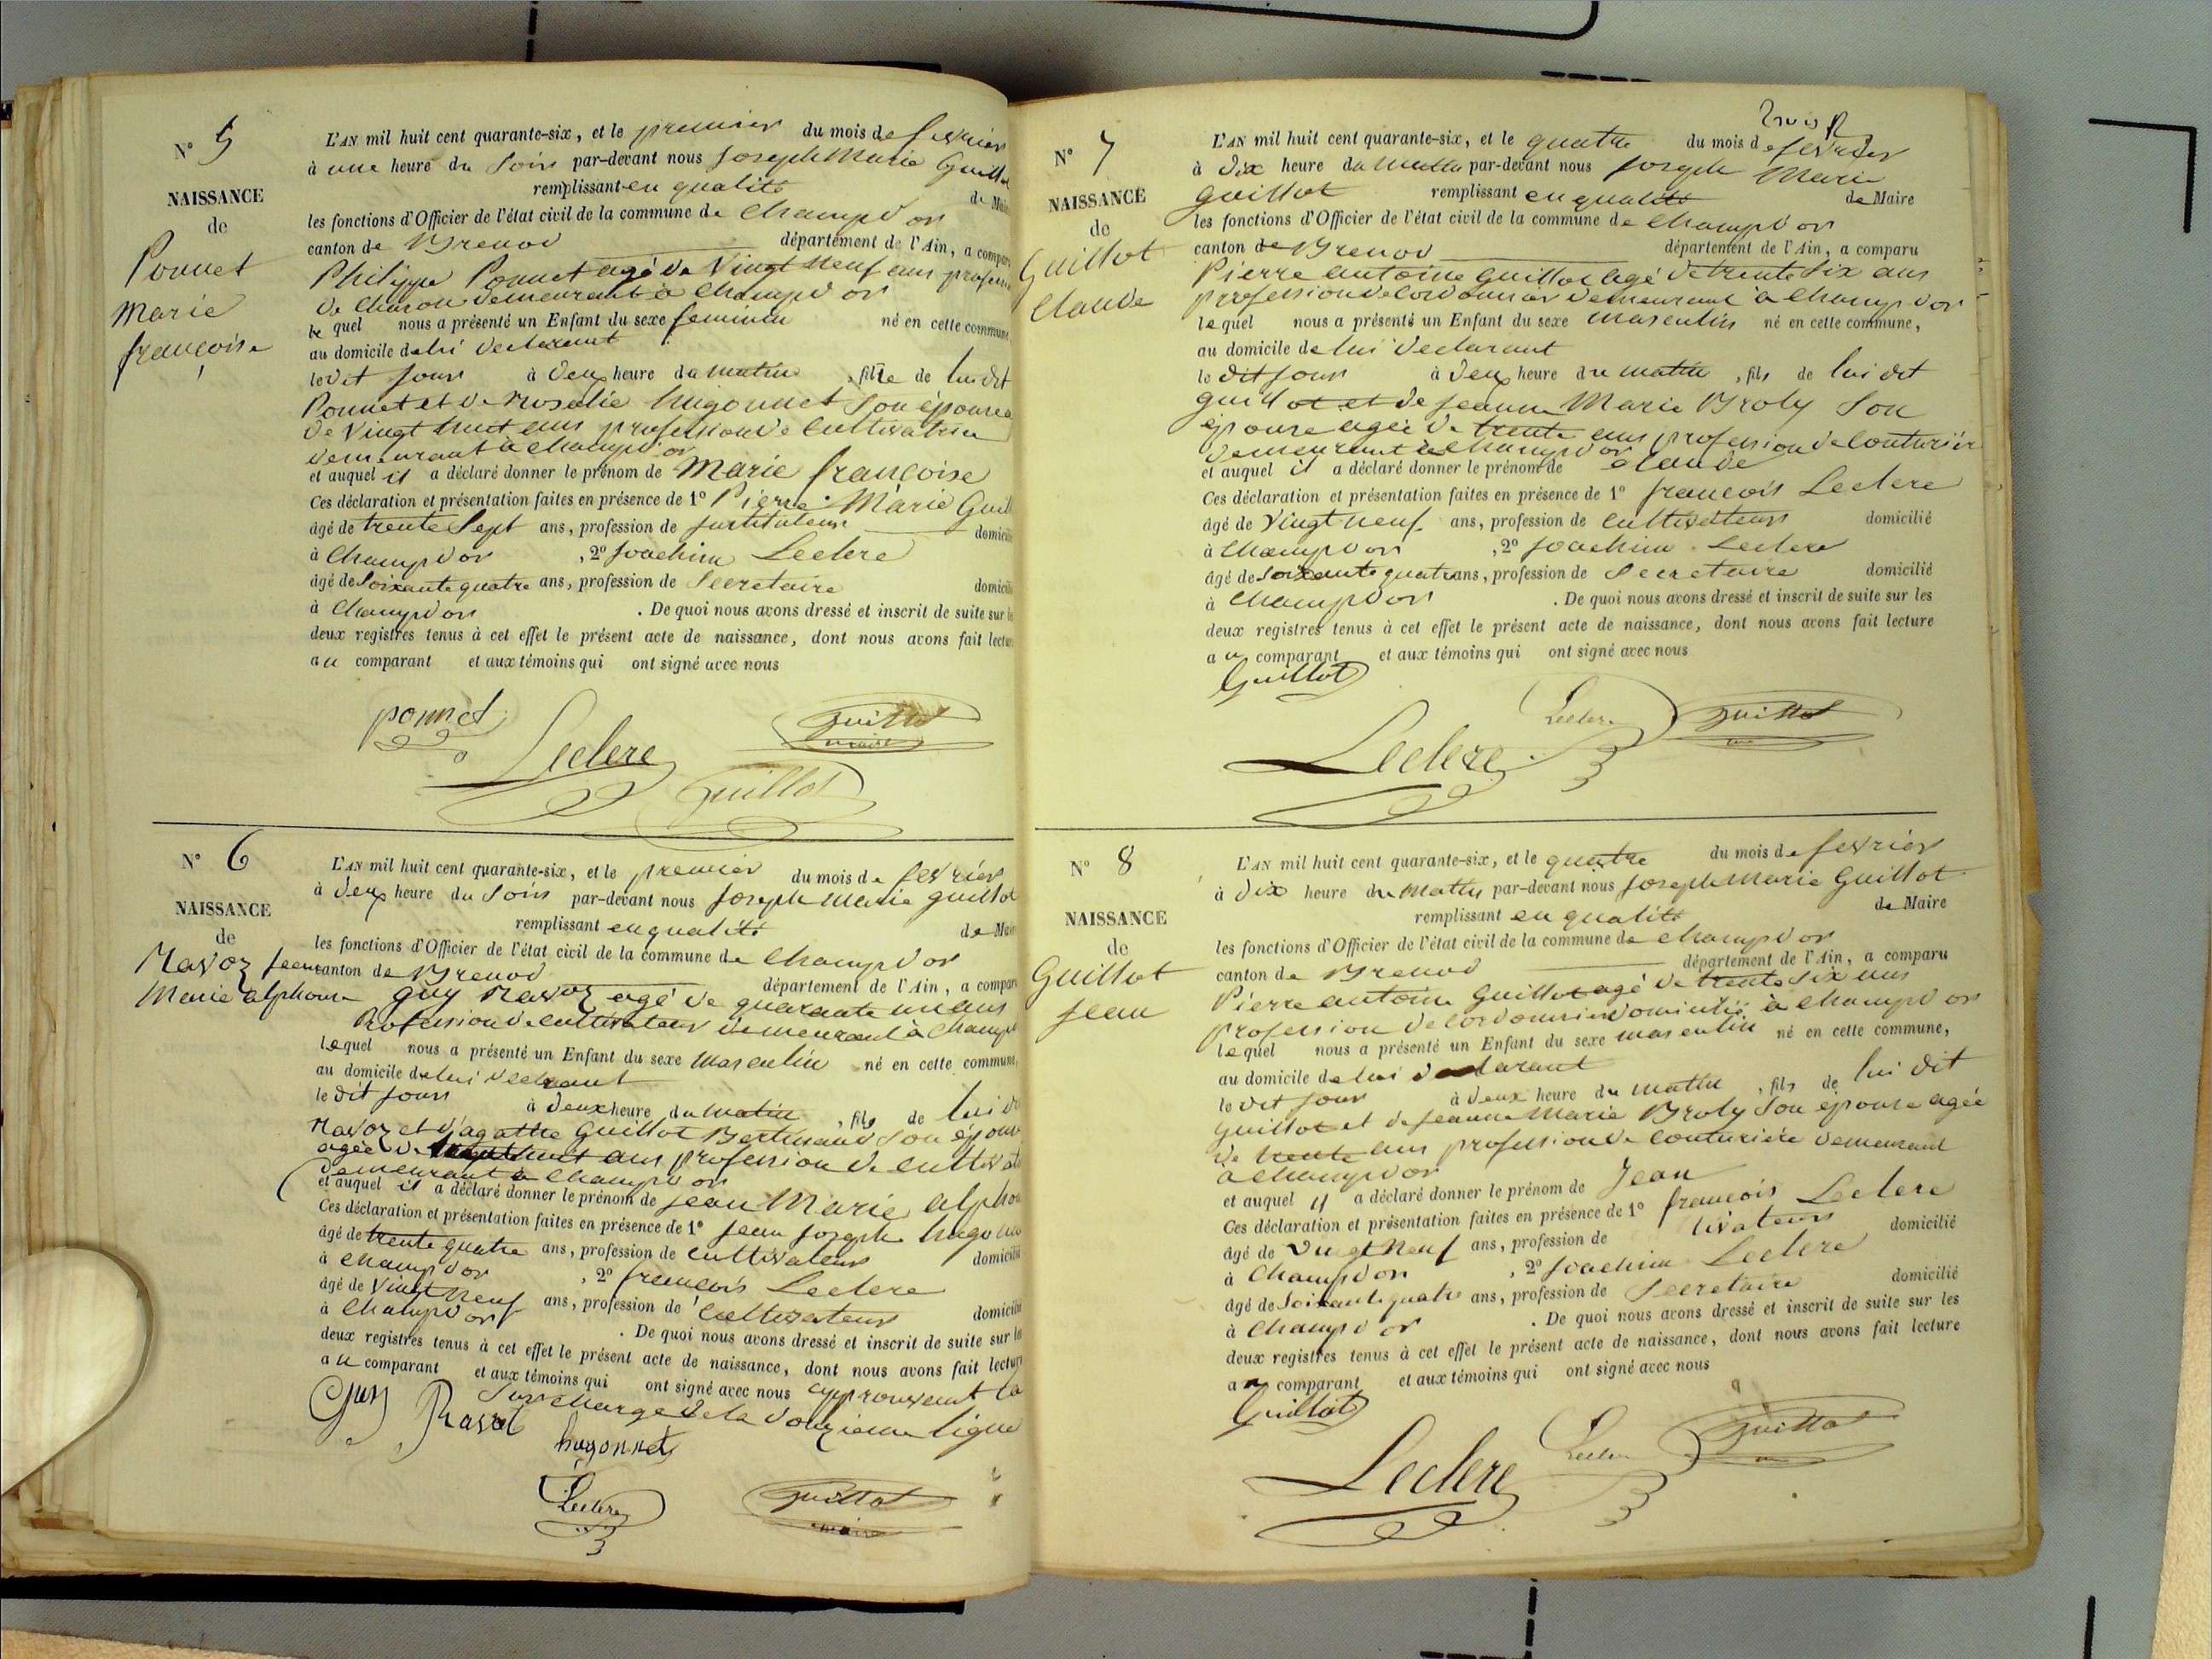 N° 5
NAISSANCE
de
Ponnet
Marie
françoise
L'AN mil huit cent quarante-six, et le premier du mois de fevrier
à une heure du Soir par-devant nous Joseph Marie Guillot
remplissant en qualité de Maire
les fonctions d'Officier de l'état civil de la commune de Champdor
canton de Brenod département de l'Ain, a comparu
Philippe Ponnet agé de Vingt neuf ans profession
de Charon demeurant à Champdor
lequel nous a présenté un Enfant du sexe feminin né en cette commune,
au domicile de lui declarant
le dit jour à deux heure du matin, fille de lui dit
Ponnet et de Rosalie hugonnet Son épouse a
de Vingt huit ans profession de Cultivatrice
demeurant à Champdor
et auquel il a déclaré donner le prénom de Marie françoise
Ces déclaration et présentation faites en présence de 1° Pierre Marie Guill
âgé de trente Sept ans, profession de justituteur domicilié
à Champdor, 2° Joachim Leclere
âgé de Soixante quatre ans, profession de Secretaire domicilié
à Champdor. De quoi nous avons dressé et inscrit de suite sur les
deux registres tenus à cet effet le présent acte de naissance, dont nous avons fait lecture
au comparant et aux témoins qui ont signé avec nous
ponnet
Guillot
maire
Leclere
Guillot
N° 6
NAISSANCE
de
Ravoz Jean
Marie alphonse
L'AN mil huit cent quarante-six, et le premier du mois de fevrier
à deux heure du Soir par-devant nous Joseph Marie guillot
remplissant en qualité de Maire
les fonctions d'Officier de l'état civil de la commune de Champdor
canton de Brenod département de l'Ain, a comparu
guy Ravoz agé de quarante un ans
Profession de cultivateur demeurant à Champd
lequel nous a présenté un Enfant du sexe Masculin né en cette commune,
au domicile de lui declarant
le dit jour à deux heure du matin, fils de lui d
Ravoz et d'agathe Guillot Bertinand Son épouse
agée de ans profession de cultivat
demeurant à Champdor
et auquel il a déclaré donner le prénom de Jean Marie alphon
Ces déclaration et présentation faites en présence de 1° Jean Joseph hugonn
âgé de trente quatre ans, profession de cultivateur domicilié
à Champdor, 2° françois Leclere
âgé de Vingt neuf ans, profession de Cultivateur domicilié
à Champdor. De quoi nous avons dressé et inscrit de suite sur les
deux registres tenus à cet effet le présent acte de naissance, dont nous avons fait lecture
au comparant et aux témoins qui ont signé avec nous approuvent la
Surcharge de la douzieme ligne
Guy Ravot
hugonnet
Leclere
Guillot
maire
trois
N° 7
NAISSANCE
de
Guillot
Claude
L'AN mil huit cent quarante-six, et le quatre du mois de fevrier
à dix heure du matin par-devant nous Joseph Marie
guillot remplissant en qualité de Maire
les fonctions d'Officier de l'état civil de la commune de Champdor
canton de Brenod département de l'Ain, a comparu
Pierre antoine guillot agé de trente Six ans
profession de Cordonnier demeurant à Champdor
lequel nous a présenté un Enfant du sexe masculin né en cette commune,
au domicile de lui declarant
le dit jour à deux heure du matin, fils de lui dit
guillot et de jeanne Marie Broly Son
épouse agée de trente ans profession de Couturièr
demeurant à Champdor
et auquel il a déclaré donner le prénom de claude
Ces déclaration et présentation faites en présence de 1° françois Leclere
âgé de Vingt neuf ans, profession de Cultivateur domicilié
à Champdor, 2° Joachim Leclere
âgé de Soixante quatre ans, profession de Secretaire domicilié
à Champdor. De quoi nous avons dressé et inscrit de suite sur les
deux registres tenus à cet effet le présent acte de naissance, dont nous avons fait lecture
au comparant et aux témoins qui ont signé avec nous
Guillot
Leclere
Guillot
Leclere
N° 8
NAISSANCE
de
Guillot
Jean
L'AN mil huit cent quarante-six, et le quatre du mois de fevrier
à dix heure du Matin par-devant nous Joseph Marie Guillot
remplissant en qualité de Maire
les fonctions d'Officier de l'état civil de la commune de Champdor
canton de Brenod département de l'Ain, a comparu
Pierre antoine Guillot agé de trente Six ans
profession de Cordonnier domicilié à Champdor
lequel nous a présenté un Enfant du sexe masculin né en cette commune,
au domicile de lui declarant
le dit jour à deux heure du matin, fils de lui dit
guillot et de jeanne Marie Broly Son épouse agée
de trente ans profession de Couturière demeurant
à Champdor
et auquel il a déclaré donner le prénom de Jean
Ces déclaration et présentation faites en présence de 1° françois Leclere
âgé de Vingt neuf ans, profession de tivateur domicilié
à Champdor, 2° Joachim Leclere
âgé de Soixante quatre ans, profession de Secretaire domicilié
à Champdor. De quoi nous avons dressé et inscrit de suite sur les
deux registres tenus à cet effet le présent acte de naissance, dont nous avons fait lecture
au comparant et aux témoins qui ont signé avec nous
Guillot
Leclere
Guillot
Leclere